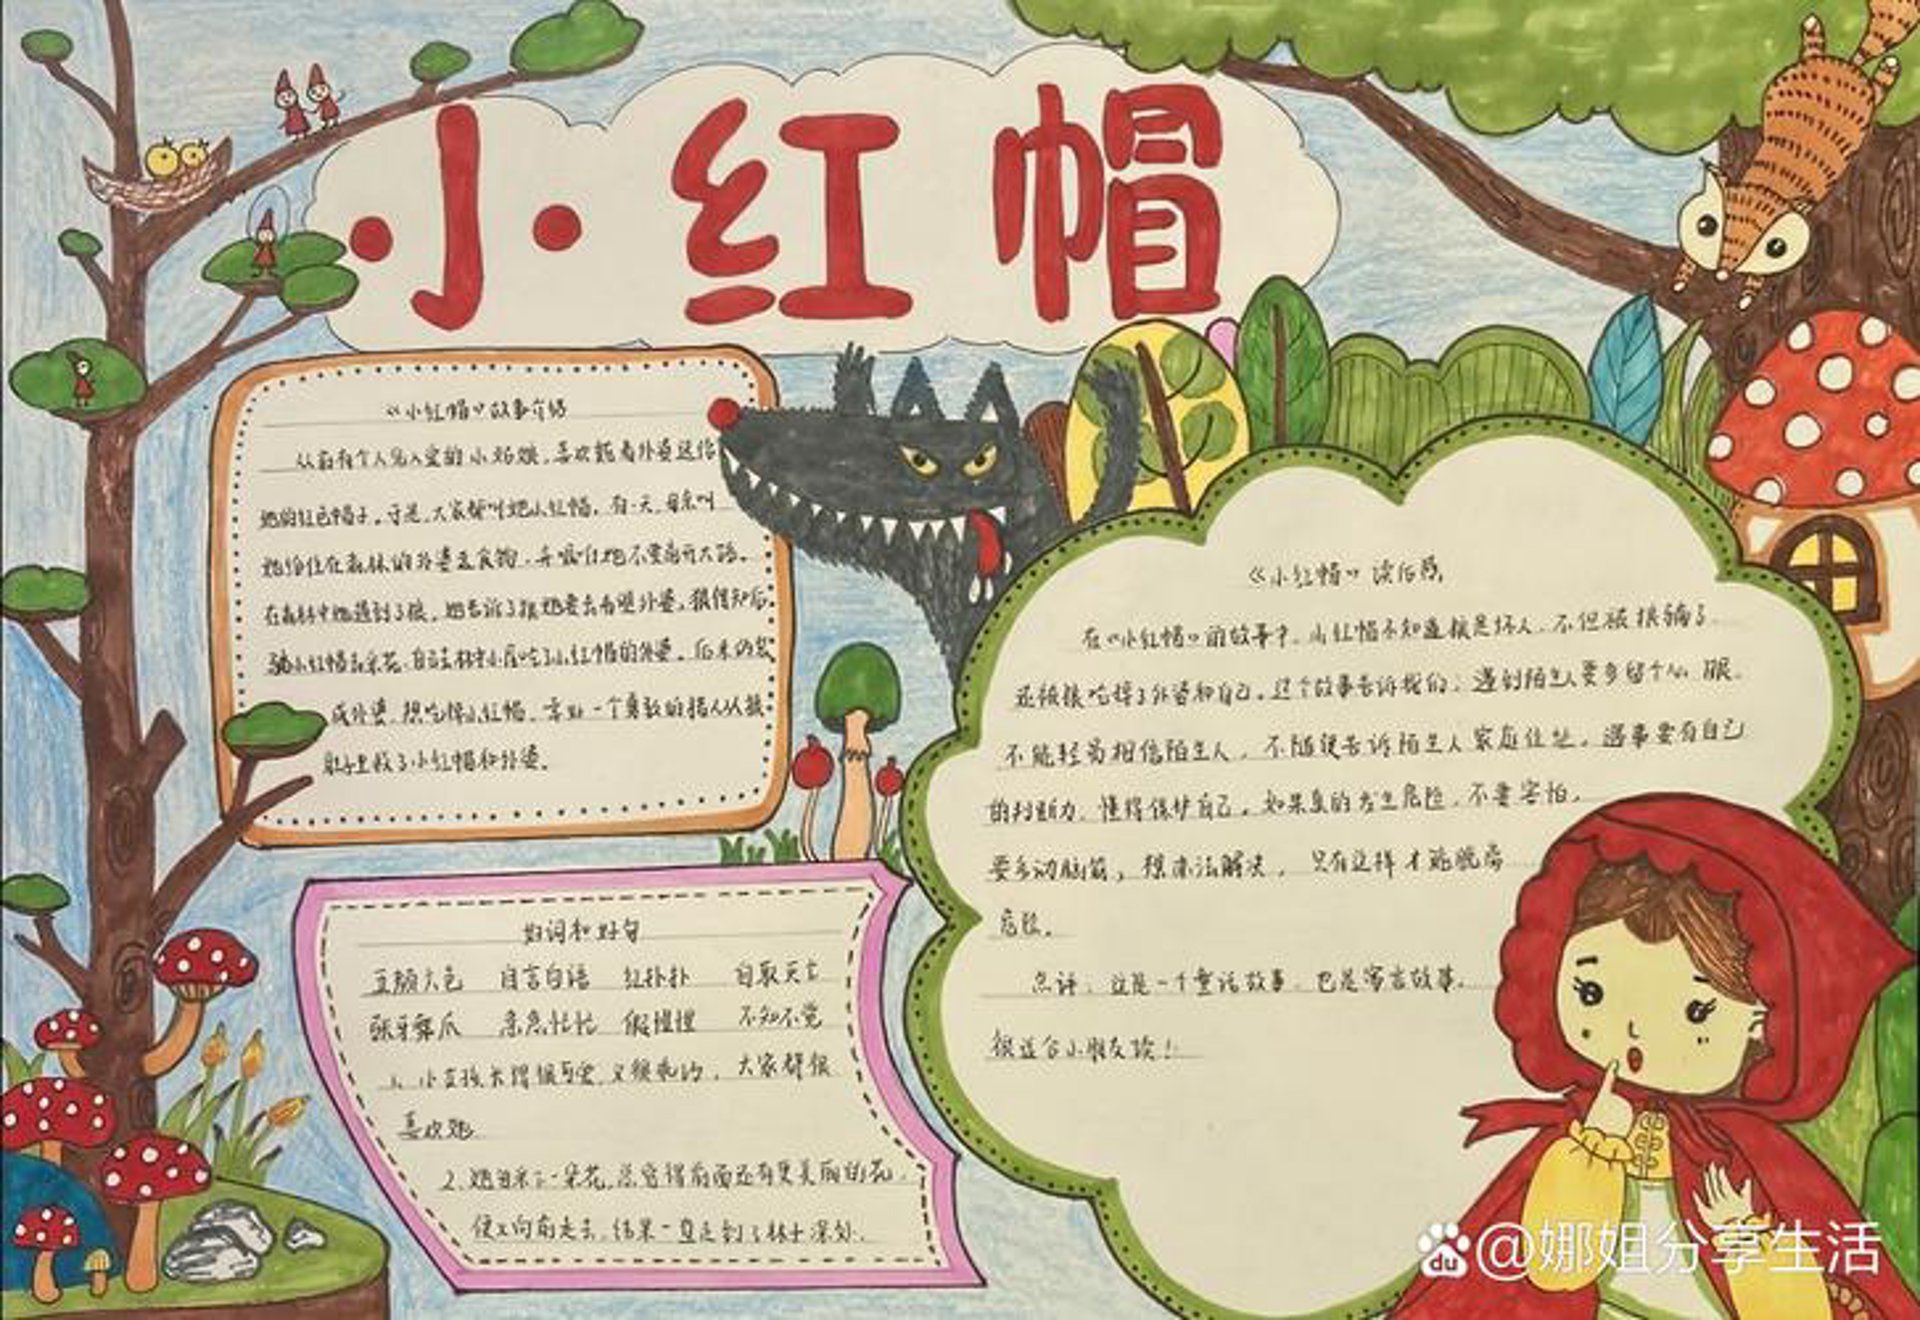 小红帽
《小红帽》故事介绍
从前有个人见人爱的小姑娘,喜欢戴着外婆送给
她的红色帽子。于是,大家都叫她小红帽。有一天,母亲叫
她给住在森林的外婆送食物,并嘱咐她不要离开大路。
在森林中她遇到了狼,她告诉了狼她要去看望外婆。狼得知后
骗小红帽去采花,自己去林中小屋吃了小红帽的外婆。后来伪装
成外婆,想吃掉小红帽。幸好一个勇敢的猎人从狼
肚子里救了小红帽和外婆。
好词和好句
五颜六色 自言自语 红扑扑 自取灭亡
张牙舞爪 急急忙忙 假惺惺 不知不觉
1. 小女孩长得很可爱,又很乖巧,大家都很
喜欢她
2. 她每采一朵花,总觉得前面还有更美丽的花,
便又向前走去,结果一直走到了林中深处.
《小红帽》读后感
在《小红帽》的故事中,小红帽不知道狼是坏人,不但被狼骗了
还被狼吃掉了外婆和自己。这个故事告诉我们:遇到陌生人要多留个心眼。
不能轻易相信陌生人,不随便告诉陌生人家庭住址。遇事要有自己
的判断力,懂得保护自己。如果真的发生危险,不要害怕,
要多动脑筋,想办法解决,只有这样才能脱离
危险。
总评:这是一个童话故事,也是寓言故事。
很适合小朋友读!
du @娜姐分享生活